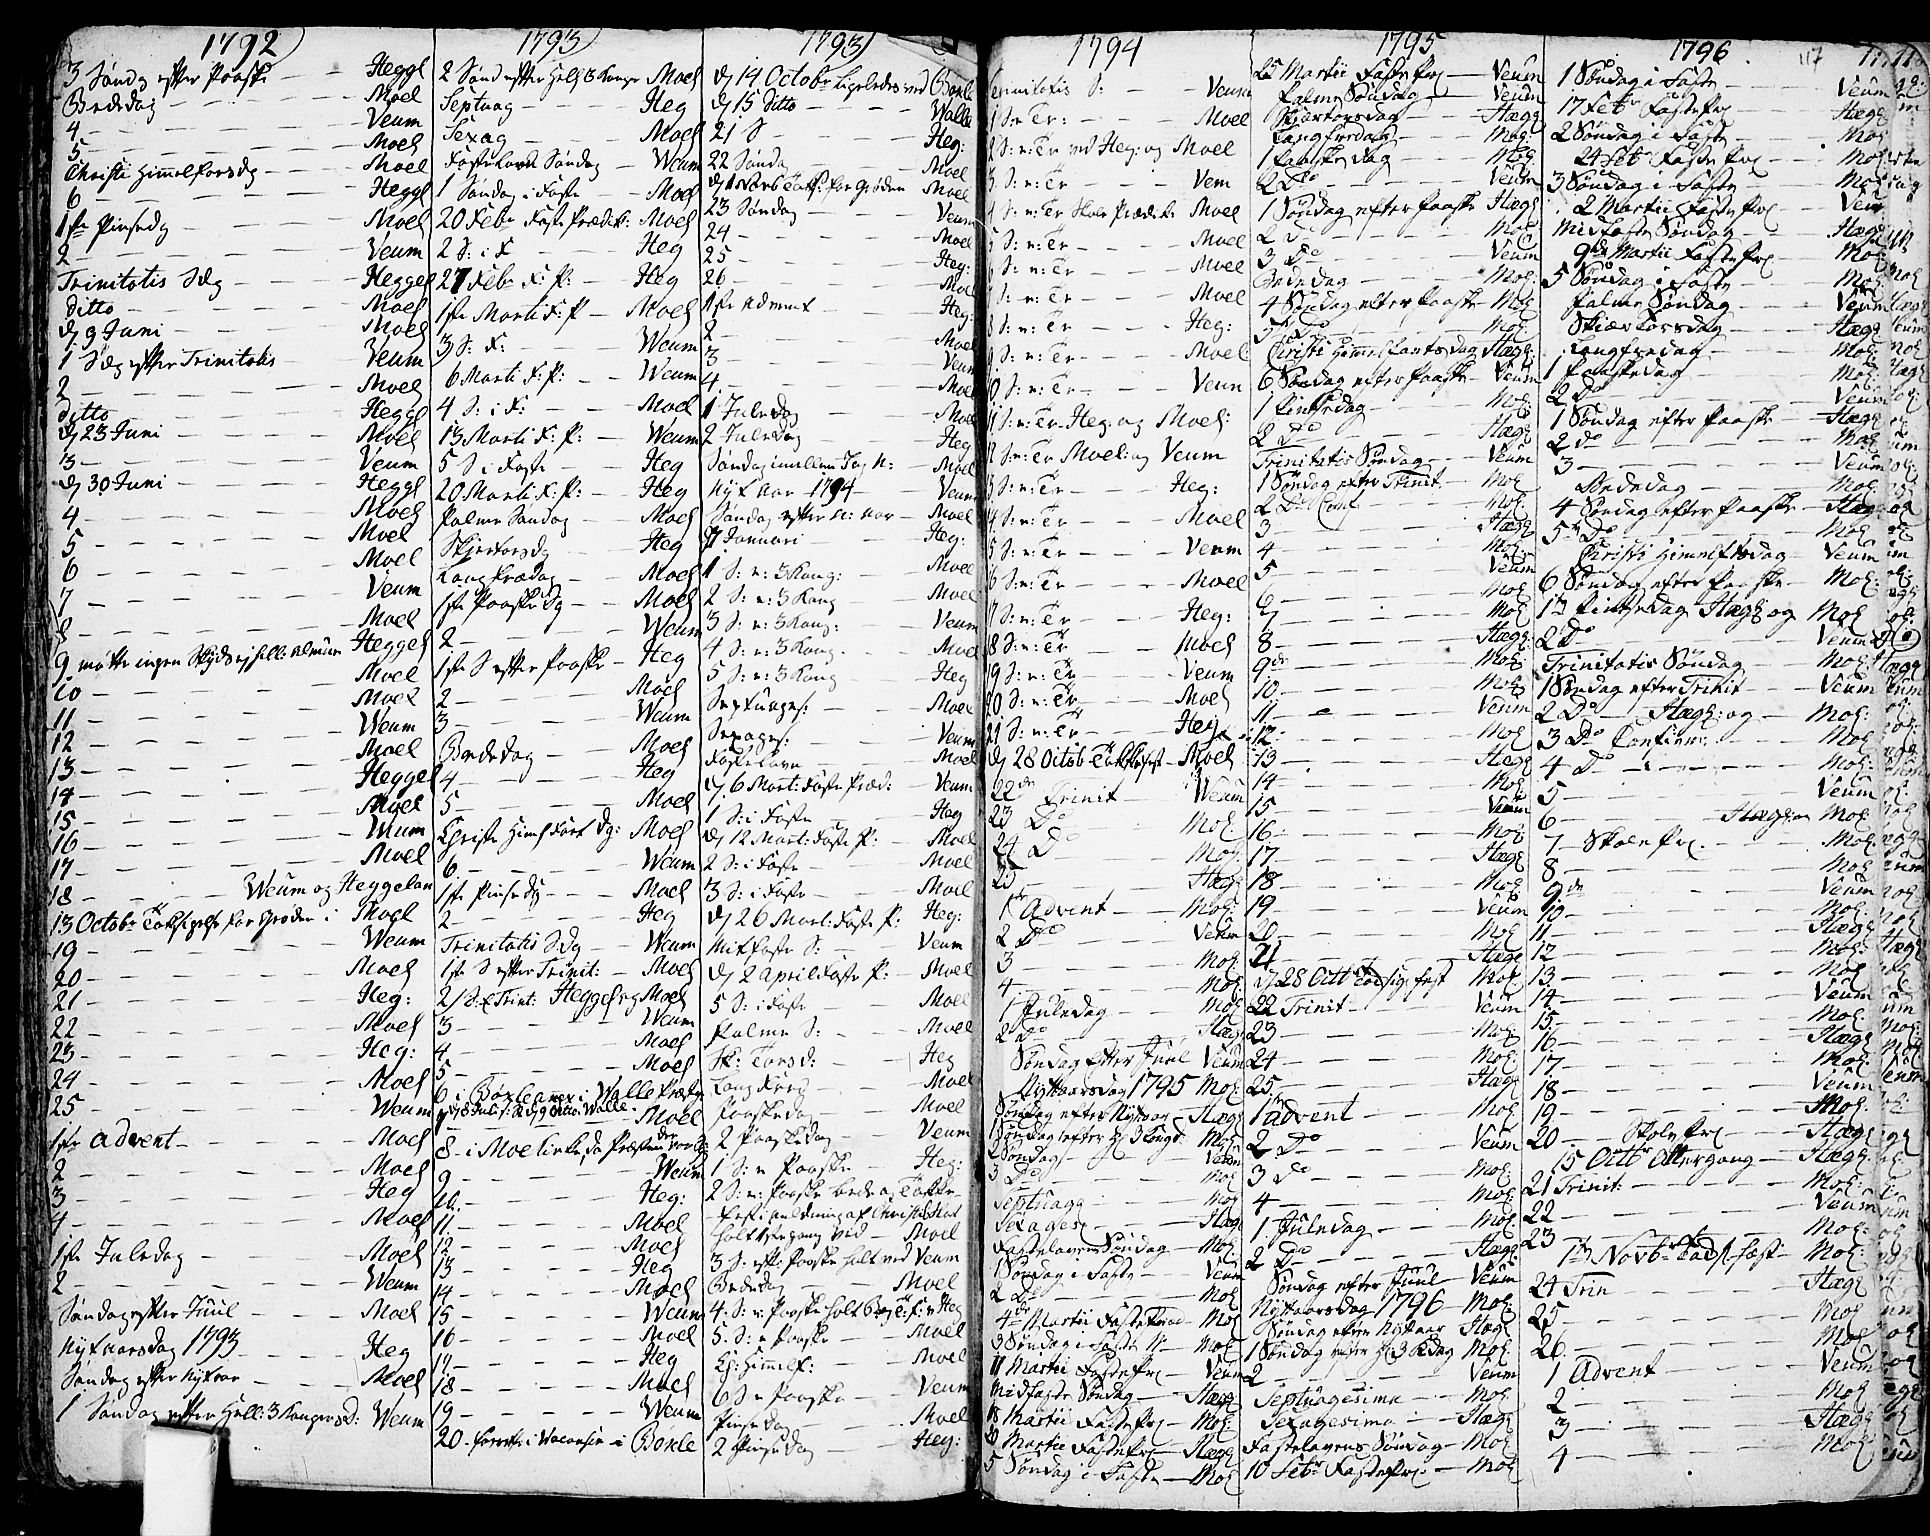 1792
3 Søndag efter Paaske — Heggl
Bededag — Moel
4 — Veum
5 — Moel
Christi Himmelfarsdg — Moel
6 — Heggl
1ste Pinsedg — Moel
2 — Veum
Trinitatis Sdg — Heggel
ditto — Moel
9 Juni — Moel
1 Sdg efter Trinitatis — Veum
2 — Moel
ditto — Heggl
23 Juni — Moel
3 — Veum
30 Juni — Heggl
4 — Moel
5 — Moel
6 — Moel
7 — Veum
8 — Moel
9 — Heggel
10 — Moel
11 — Moel
12 — Weum
13 — Moel
14 — Heggel
15 — Moel
16 — Weum
17 — Moel
18 — Weum og Heggeland
13 Octobr Taksigelse for Grøden i Moel
19 — Weum
20 — Moel
21 — Heg:
22 — Moel
23 — Heg:
24 — Moel
25 — Weum
1ste Advent — Moel
2 — Moel
3 — Heg
4 — Moel
1ste Juledag — Moel
2 — Weum
Søndag efter Juul — Moel
Nytaarsdag 1793 — Heg
Søndag efter Nytaar — Moel
1 Søndag efter Hell: 3 Kongersd: Weum
1793
2 Sønd efter Hell 3 Konger Moel
Septuag — Heg
Sexag — Moel
Fastelavns Søndag — Weum
1 Søndag i Faste — Moel
20 Febr Faste Prædik: Moel
2 S: i F — Heg
27 Febr F: P: — Heg
1ste Marti F: P — Moel
3 S: F: — Weum
6 Marti F: P: — Weum
4 S: i F: — Moel
13 Marti F: P: — Weum
5 S i Faste — Heg
20 Marti F: P: — Heg
Palme Søndag — Moel
Skjertorsdg — Heg
Langfredag — Moel
1ste Paaskedg — Moel
2 — Weum
1ste S efter Paaske — Heg
2 — Moel
3 — Weum
Bededag — Moel
4 — Heg
5 — Moel
Christi Himelfart dg: Moel
6 — Weum
1ste Pinsedg — Moel
2 — Heg
Trinitatis Sdg — Weum
1ste S efter Trinit: — Moel
2 S: e Trint: Heggel og Moel
3 — Weum
4 — Moel
5 — Moel
6 i
Moel
8 — i Moe
9 — Weum
10 — Heg:
11 — Moel
12 — Moel
13 — Heg
14 — Moel
15 — Weum
16 — Moel
17 — Heg
18 — Moel
19 — Weum
20
1793
14 Octobr Ligeledes ved
15 ditto — Walle
21 S — Heg:
22 Søndag — Moel
for Grøden Moel
23 Søndag — Veum
24 — Moel
25 — Heg:
26 — Moel
1ste Advent — Heg:
2 — Moel
3 — Veum
4 — Moel
1 Juledag — Moel
2 Juledag — Heg
Søndag imellem Jul og N: — Moel
Nyt Aar 1794 — Veum
Søndag efter N: Aar — Moel
Januari — Heg:
1 S: e: 3 Kong: — Moel
2 S: e: 3 Kong — Moel
3 S: e: 3 Kong: — Veum
4 S: e: 3 Kong. — Moel
5 S: e: 3 Kong — Heg
Septuages: — Moel
Sexages: — Veum
Fastelavn — Moel
6 Mart: Faste Præd: — Veum
1 S: i Faste — Heg
12 Mart: Faste P: — Moel
2 S: i Faste — Moel
3 S: i Faste — Moel
26 Mart: Faste P: — Heg:
Mitfaste S: — Veum
2 April Faste P: — Moel
5 S: i Faste — Moel
Palme S: — Moel
Sk: Torsd: — Heg
Lang Fred — Moel
Paaskedag — Moel
2 Paaskedag — Veum
1 S: e Paaske — Heg:
2 S: e: Paaske
Moel
3 S: eft: Paaske holt ved Veum
Bededag — Moel
4 S: e Paaske holt
5 S: e Paaske — Moel
C: Himmelf: — Moel
6 S e Paaske — Veum
Pinsedag — Moel
2 Pinsedag — Heg:
1794
Trinitatis S: — Veum
1 S: e Tr: — Moel
2 S: e: Tr ved Heg: og Moel
3 S: e: Tr — Vem
4 S: e: Tr Skole Prædik Moel
5 S: e: Tr — Moel
6 S: e: Tr — Moel
7 S: e: Tr — Moel
8 S: e: Tr — Heg:
9 S: e: Tr — Moel:
10 S: e: Tr — Veum
11 S: e: Tr Heg: og Moel:
12 S: e: Tr Moel: og Veum
13 S: e: Tr — Heg:
14 S: e: Tr — Moel
15 S: e: Tr — Veum
16 S: e: Tr — Moel
17 S: e: Tr — Heg:
18 S: e: Tr — Moel
19 S: e: Tr — Veum
20 S: e: Tr — Moel
21 S: e: Tr — Heg
28 Octob Takkefest — Moel
22de Trinit — Weum
23 Do — Moe:
24 Do — Moe:
25 — Hægg
1 Advent — Moe:
2 Do — Veum
3 — Moe
4 — Moe
1 Juledag — Moe
2 Do — Hæg
Søndag efter Juul Veum
Nyttaarsdag 1795 Moe:
Søndag efter Nytaar — Hægg
1 Søndag efter H 3 Kongd Moe
2 Søndag — Veum
3 Do — Moe
Septuag — Moe
Sexages — Hæg
Fastelavens Søndag — Moe
1 Søndag i Faste — Veum
2 Do — Moe
4de Martii Faste — Moe
3 Søndag i Faste — Moe
11 Martii Faste Pr — Veum
Midfaste Søndag — Hægg
18 Martii Faste Pr — Moe
Martii Faste Pr — Hægg
5 Søndag i Faste — Moe
1795
25 Martii Faste Pr — Veum
Palme Søndag — Veum
Skiærtorsdag — Hægg
Langfredag — Moe
1 Paaskedag — Moe
2 Do — Veum
1 Søndag efter Paaske Hægg
2 Do — Moe
3 Do — Veum
Bededag — Moe:
4 Søndag efter Paaske Moe
5 Do — Moe:
Christi Himmelfartsdag Hægg:
6 Søndag efter Paaske Veum
1 Pintsedag — Moe
2 Do — Hægg
Trinitatis Søndag — Veum
1 Søndag efter Trinit — Moe
2 Do Conf — Moe:
3 — Hægg
4 — Moe:
5 — Veum
6 — Moe
7 — Moe
8 — Hægg:
9de — Moe
10 — Moe
11 — Veum
12 — Moe
13 — Hægg
14 — Moe
15 — Veum
16 — Moe
17 — Hægg
18 — Moe
19 — Veum
20 — Moe
21 — Hægg
28 Octb — Moe
22 Trinit — Veum
23 — Moe
24 — Moe:
25 — Hægg
1 Advent — Moe
2 Do — Veum
3 Do — Moe:
4 — Moe:
1 Juledag — Moe
2 Do — Hægg
Søndag efter Juul — Veum
Nyttaarsdag 1796 — Moe
Søndag efter Nytaar Hægg
1 Søndag efter H 3 K dag Moe
2 — Veum
Septuagesima — Moe
Sexagesima — Hægg
Fastelavens Søndag — Moe
10 Febr Faste Pr. — Moe
1796
117
1 Søndag i Faste — Veum
17 Febr Faste Pr — Hægg
2 Søndag i Faste — Moe
24 Febr Faste Pr — Moe
3 Søndag i Faste — Moe
2 Martii Faste Pr — Veum
Midfaste Søndag — Hægg
9de Martii Faste Pr — Moe
5 Søndag i Faste — Moe
Palme Søndag — Veum
Skiærtorsdag — Hægg
Langfredag — Moe:
1 Paaskedag — Moe
2 Do — Veum
1 Søndag efter Paaske — Hægg
2 Do — Moe
3 — Veum
Bededag — Moe
4 Søndag efter Paaske — Hægg
5 Do — Moe
Christi Himmelfartsdag — Veum
6 Søndag efter Paaske — Moe:
1 Pintsedag Hægg og Moe
2 Do — Veum
Trinitatis Søndag — Moe:
1 Søndag efter Trinit — Veum
2 Do — Hægg: og — Moe:
3 Do Confirm: — Moe
4 Do — Moe:
5 — Veum
6 — Hægg: og Moe
7 — Skole Pr. — Moe
8 — Moe
9de — Veum
10 — Moe:
11 — Hægg
12 — Moe:
13 — Moe
14 — Veum
15 — Moe:
16 — Hægg
17 — Moe:
18 — Veum
19 — Moe:
20 — Skole Pr — Hægg
15 Octbr Ottergang — Hægg
21 Trinit: — Moe:
22 — Veum
23 — Moe:
1 Novbr — Moe:
24 Trin — Hægg
25 — Moe
26 — Moe
1 Advent — Veum
2 — Moe
3 — Hægg
4 — Moe